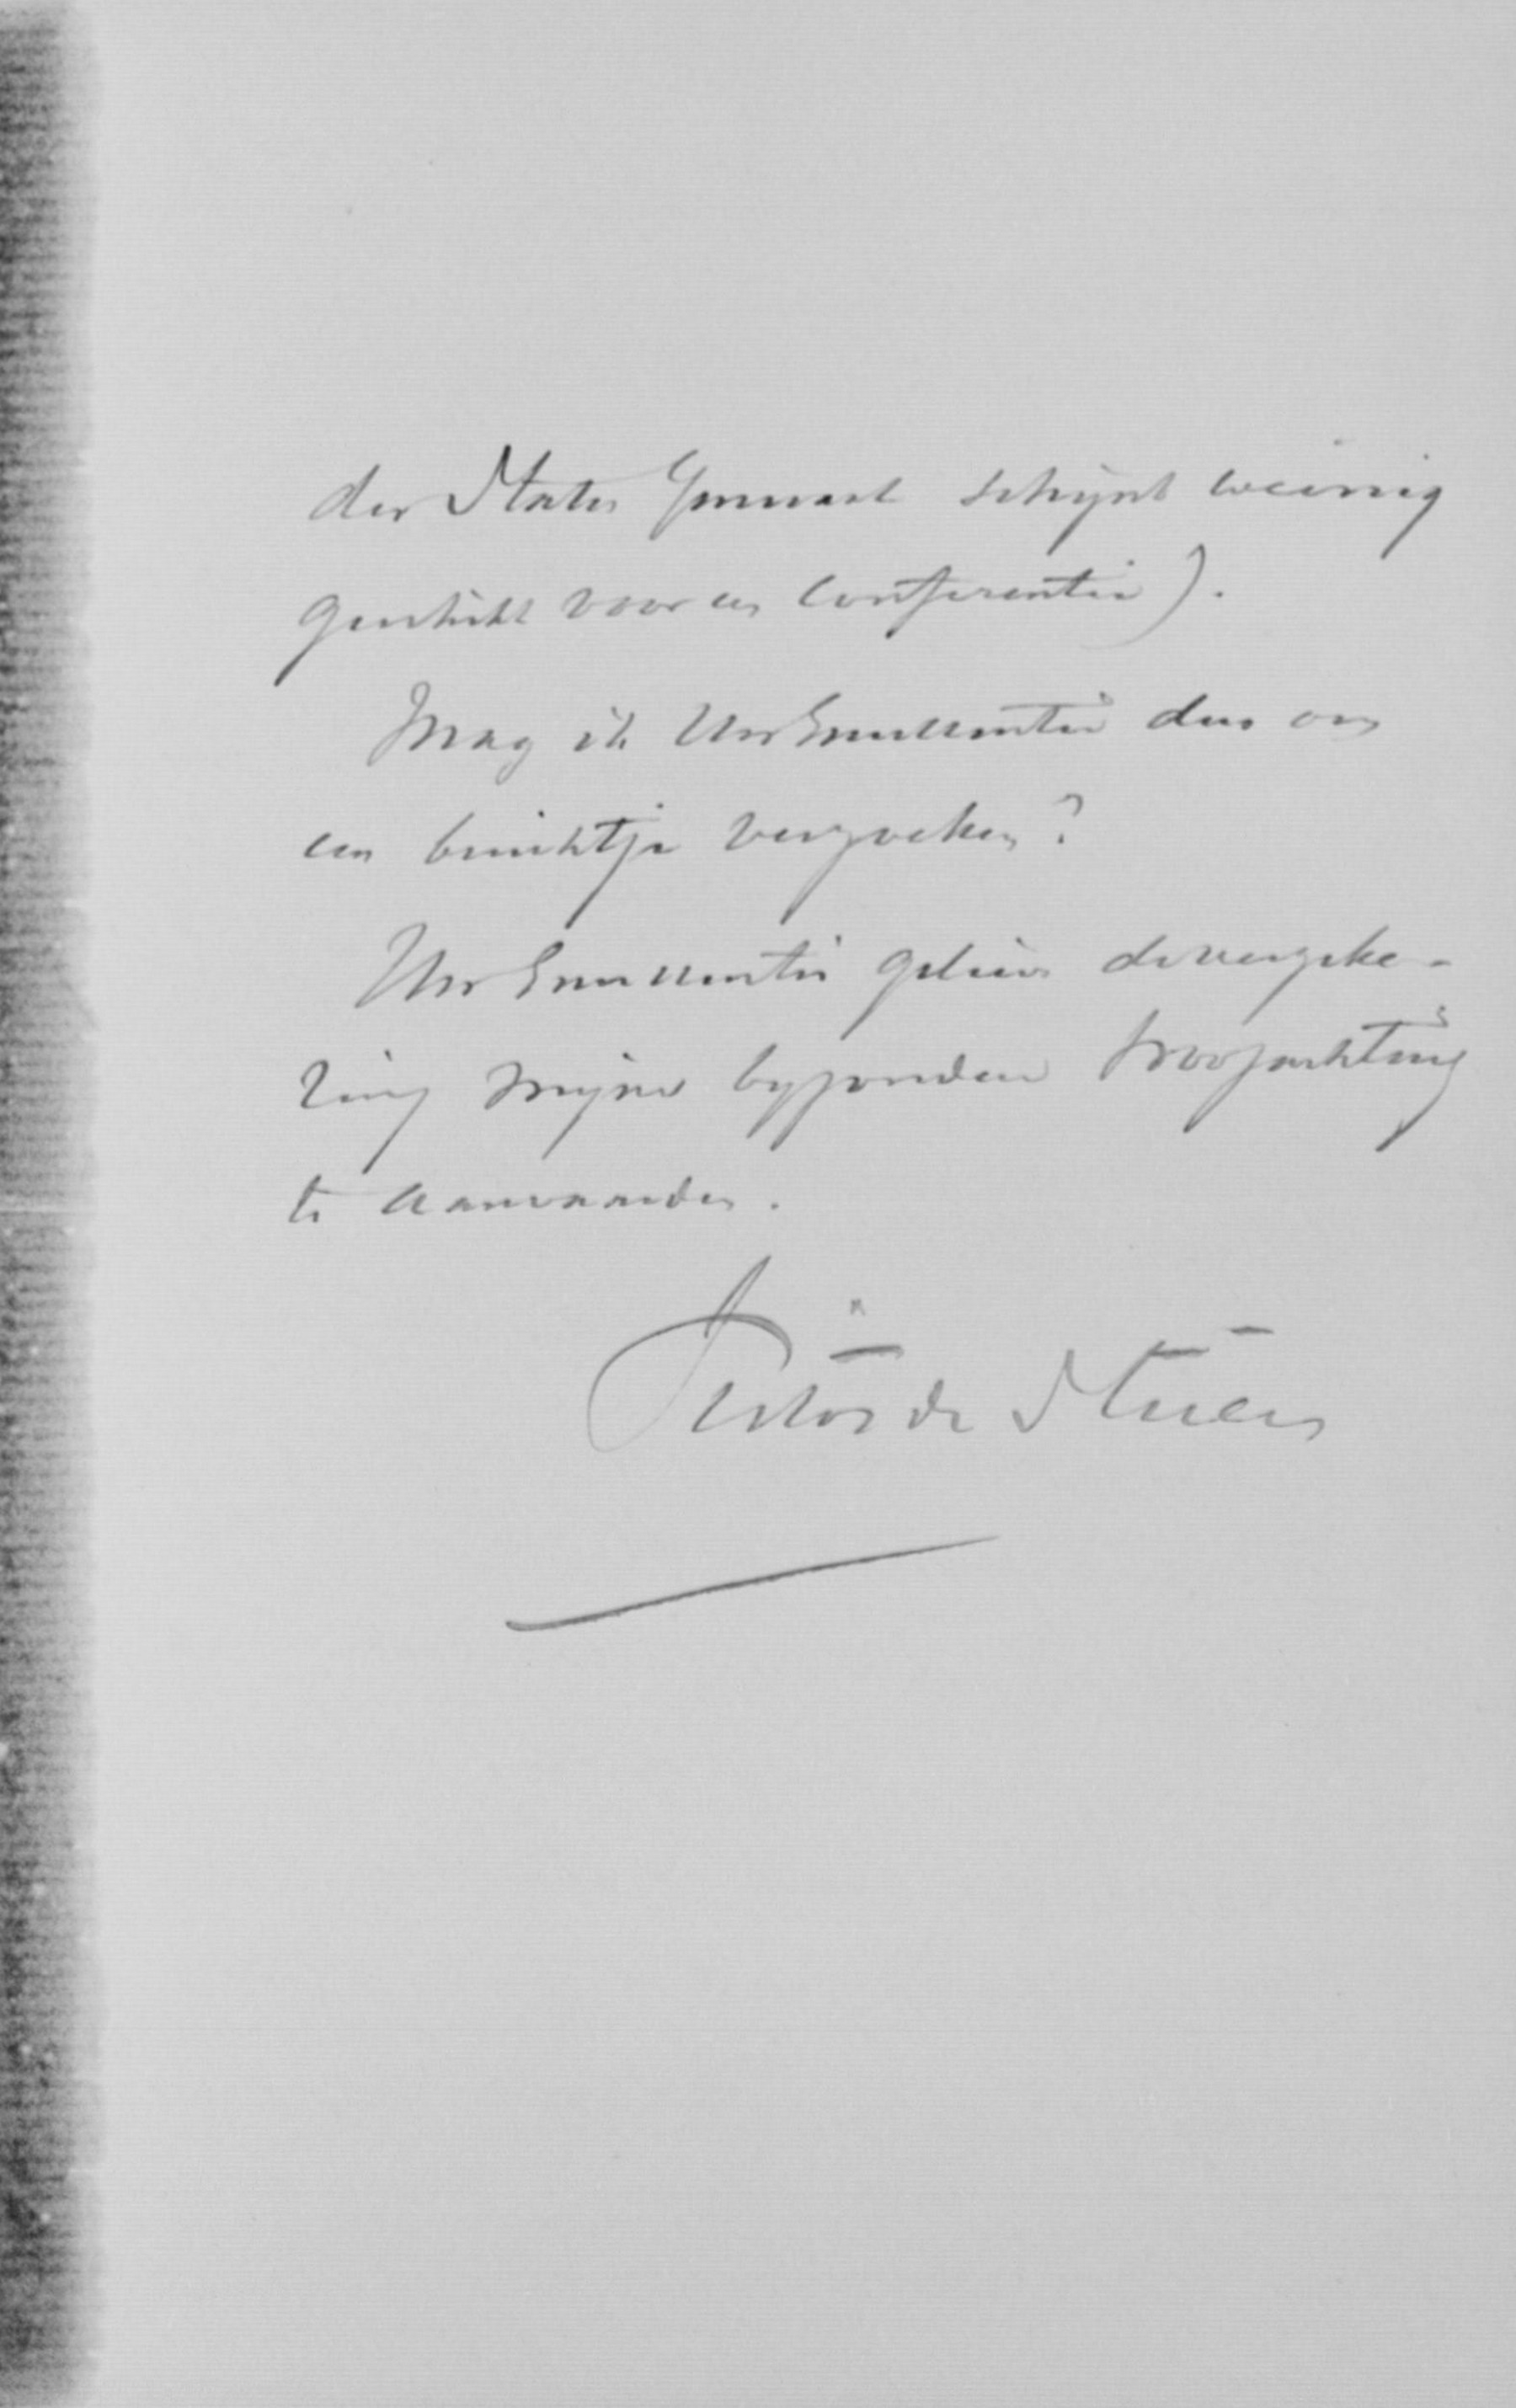 der Staten Generaal schijnt weinig
geschikt voor een Conferentie).
Mag ik Uw Excellentie dus om
een berichtje verzoeken?
Uw Excellentie gelieve de verzeke-
ring mijner byzondere hoogachting
te aanvaarden.
Victor de Stuers